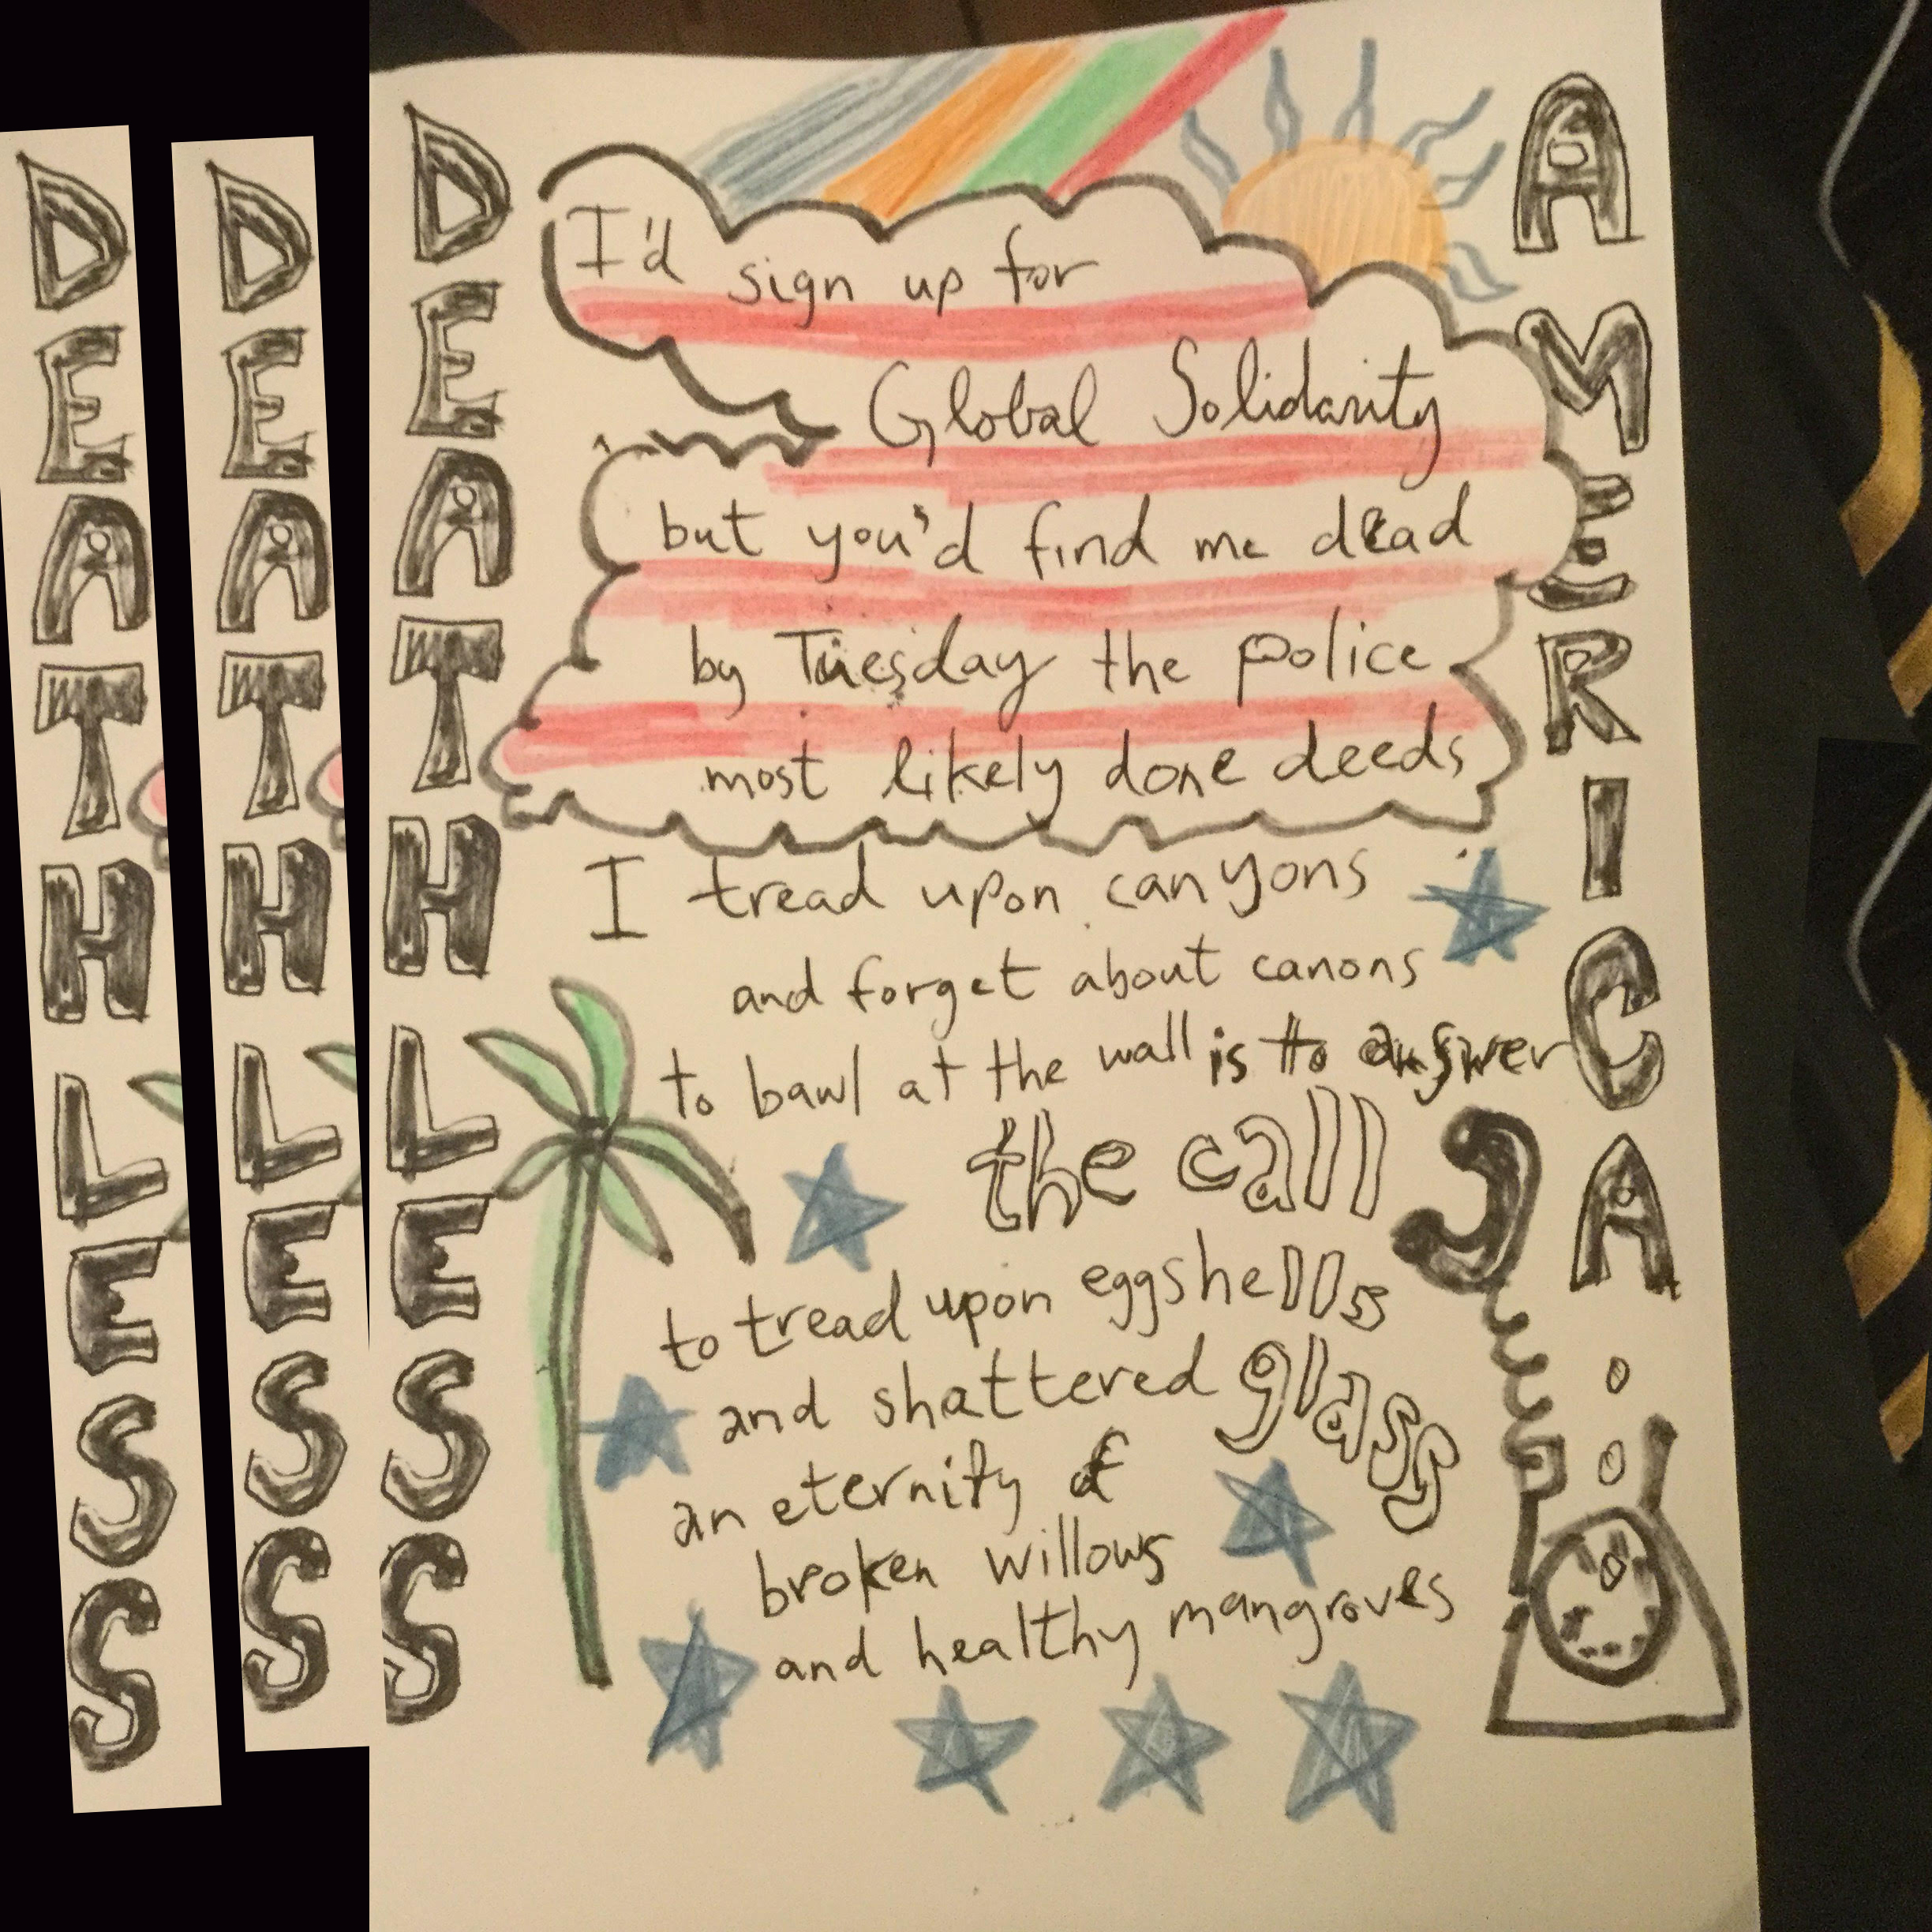 DEATHLESS
DEATHLESS
DEATHLESS
I'd sign up for
Global Solidarity
but you'd find me dead
by Tuesday the police
most likely done deeds
I tread upon canyons
and forget about canons
to bawl at the wall is to answer
the call
to tread upon eggshells
and shattered glass
an eternity of
broken willows
and healthy mangroves
AMERICA